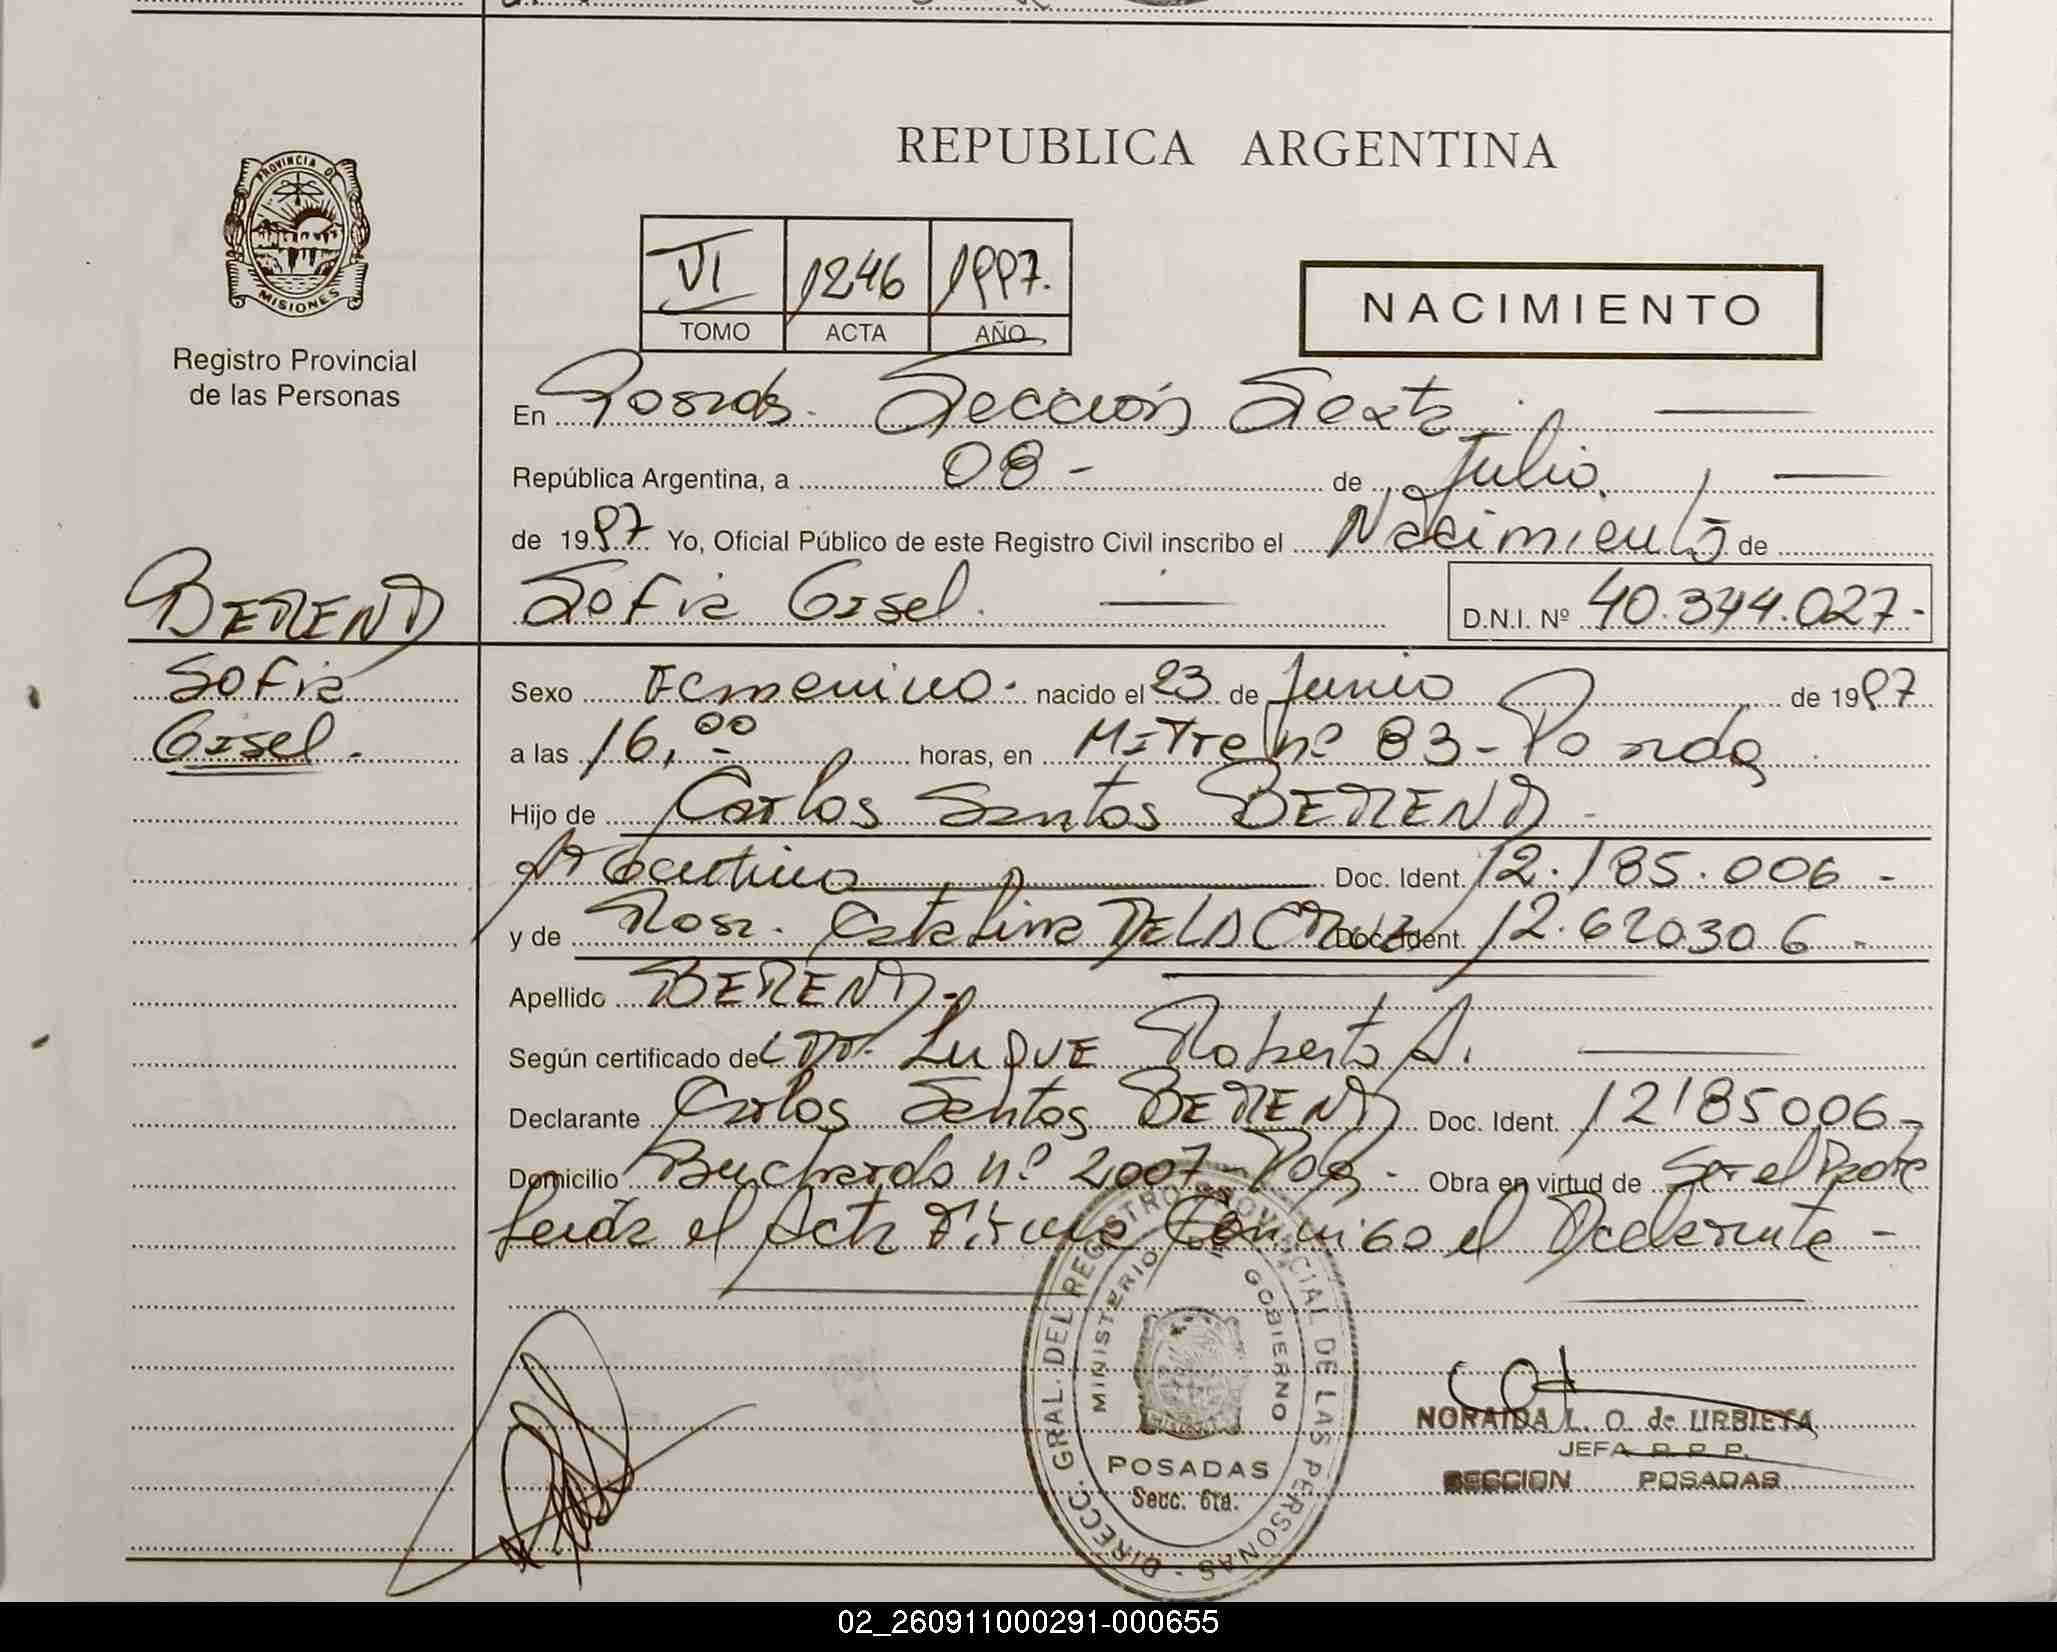 REPUBLICA ARGENTINA
PROVINCIA DE
MISIONES
Registro Provincial
de las Personas
VI 1246 1997.
TOMO ACTA AÑO
NACIMIENTO
En Posadas. Sección Sexta
República Argentina, a 08 - de Julio
de 1997 Yo, Oficial Público de este Registro Civil inscribo el Nacimiento de
Sofia Gisel. D.N.I. Nº 40.344.027-
BEREND
Sofia
Gisel.
Sexo Femenino. nacido el 23 de Junio de 1997
a las 16,00 horas, en Mitre nº 83 - Posadas
Hijo de Carlos Santos BEREND -
Argentino Doc. Ident. 12.185.006 -
y de Rosa. Catalina DELA CRUZ Doc. Ident. 12.620306 -
Apellido BEREND -
Según certificado de Dr. LUQUE Roberto A.
Declarante Carlos Santos BEREND Doc. Ident. 12185006-
Domicilio Buchardo nº 2007 Pdas - Obra en virtud de Ser el Padre
Leída el Acta Firma Conmigo el Declarante -
DIRECC. GRAL. DEL REGISTRO PROVINCIAL DE LAS PERSONAS
MINISTERIO GOBIERNO
POSADAS
Secc. 6ta.
NORAIDA L. O. de URBIETA
JEFA R. P. P.
SECCION POSADAS
02_260911000291-000655